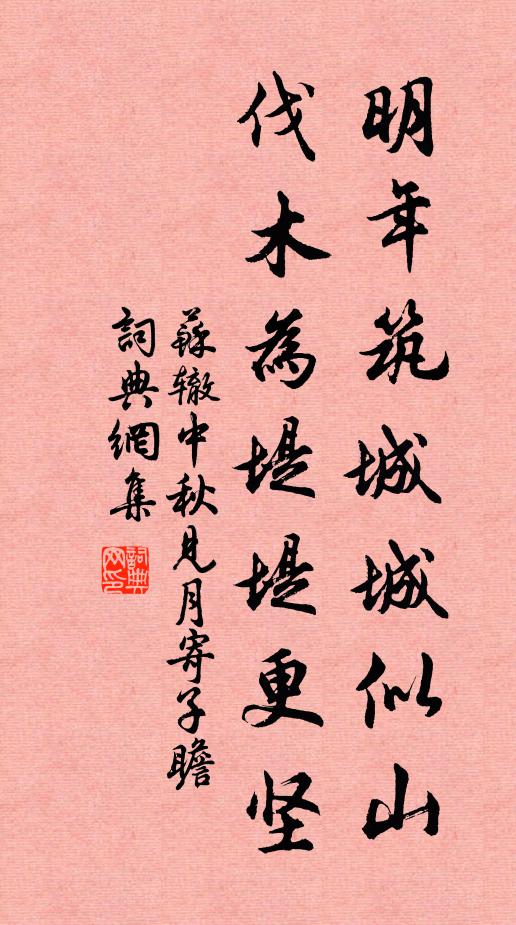 明年筑城城似山
伐木為堤堤更坚
蘇辙中秋見月寄子瞻
詞典網集
詞典网印